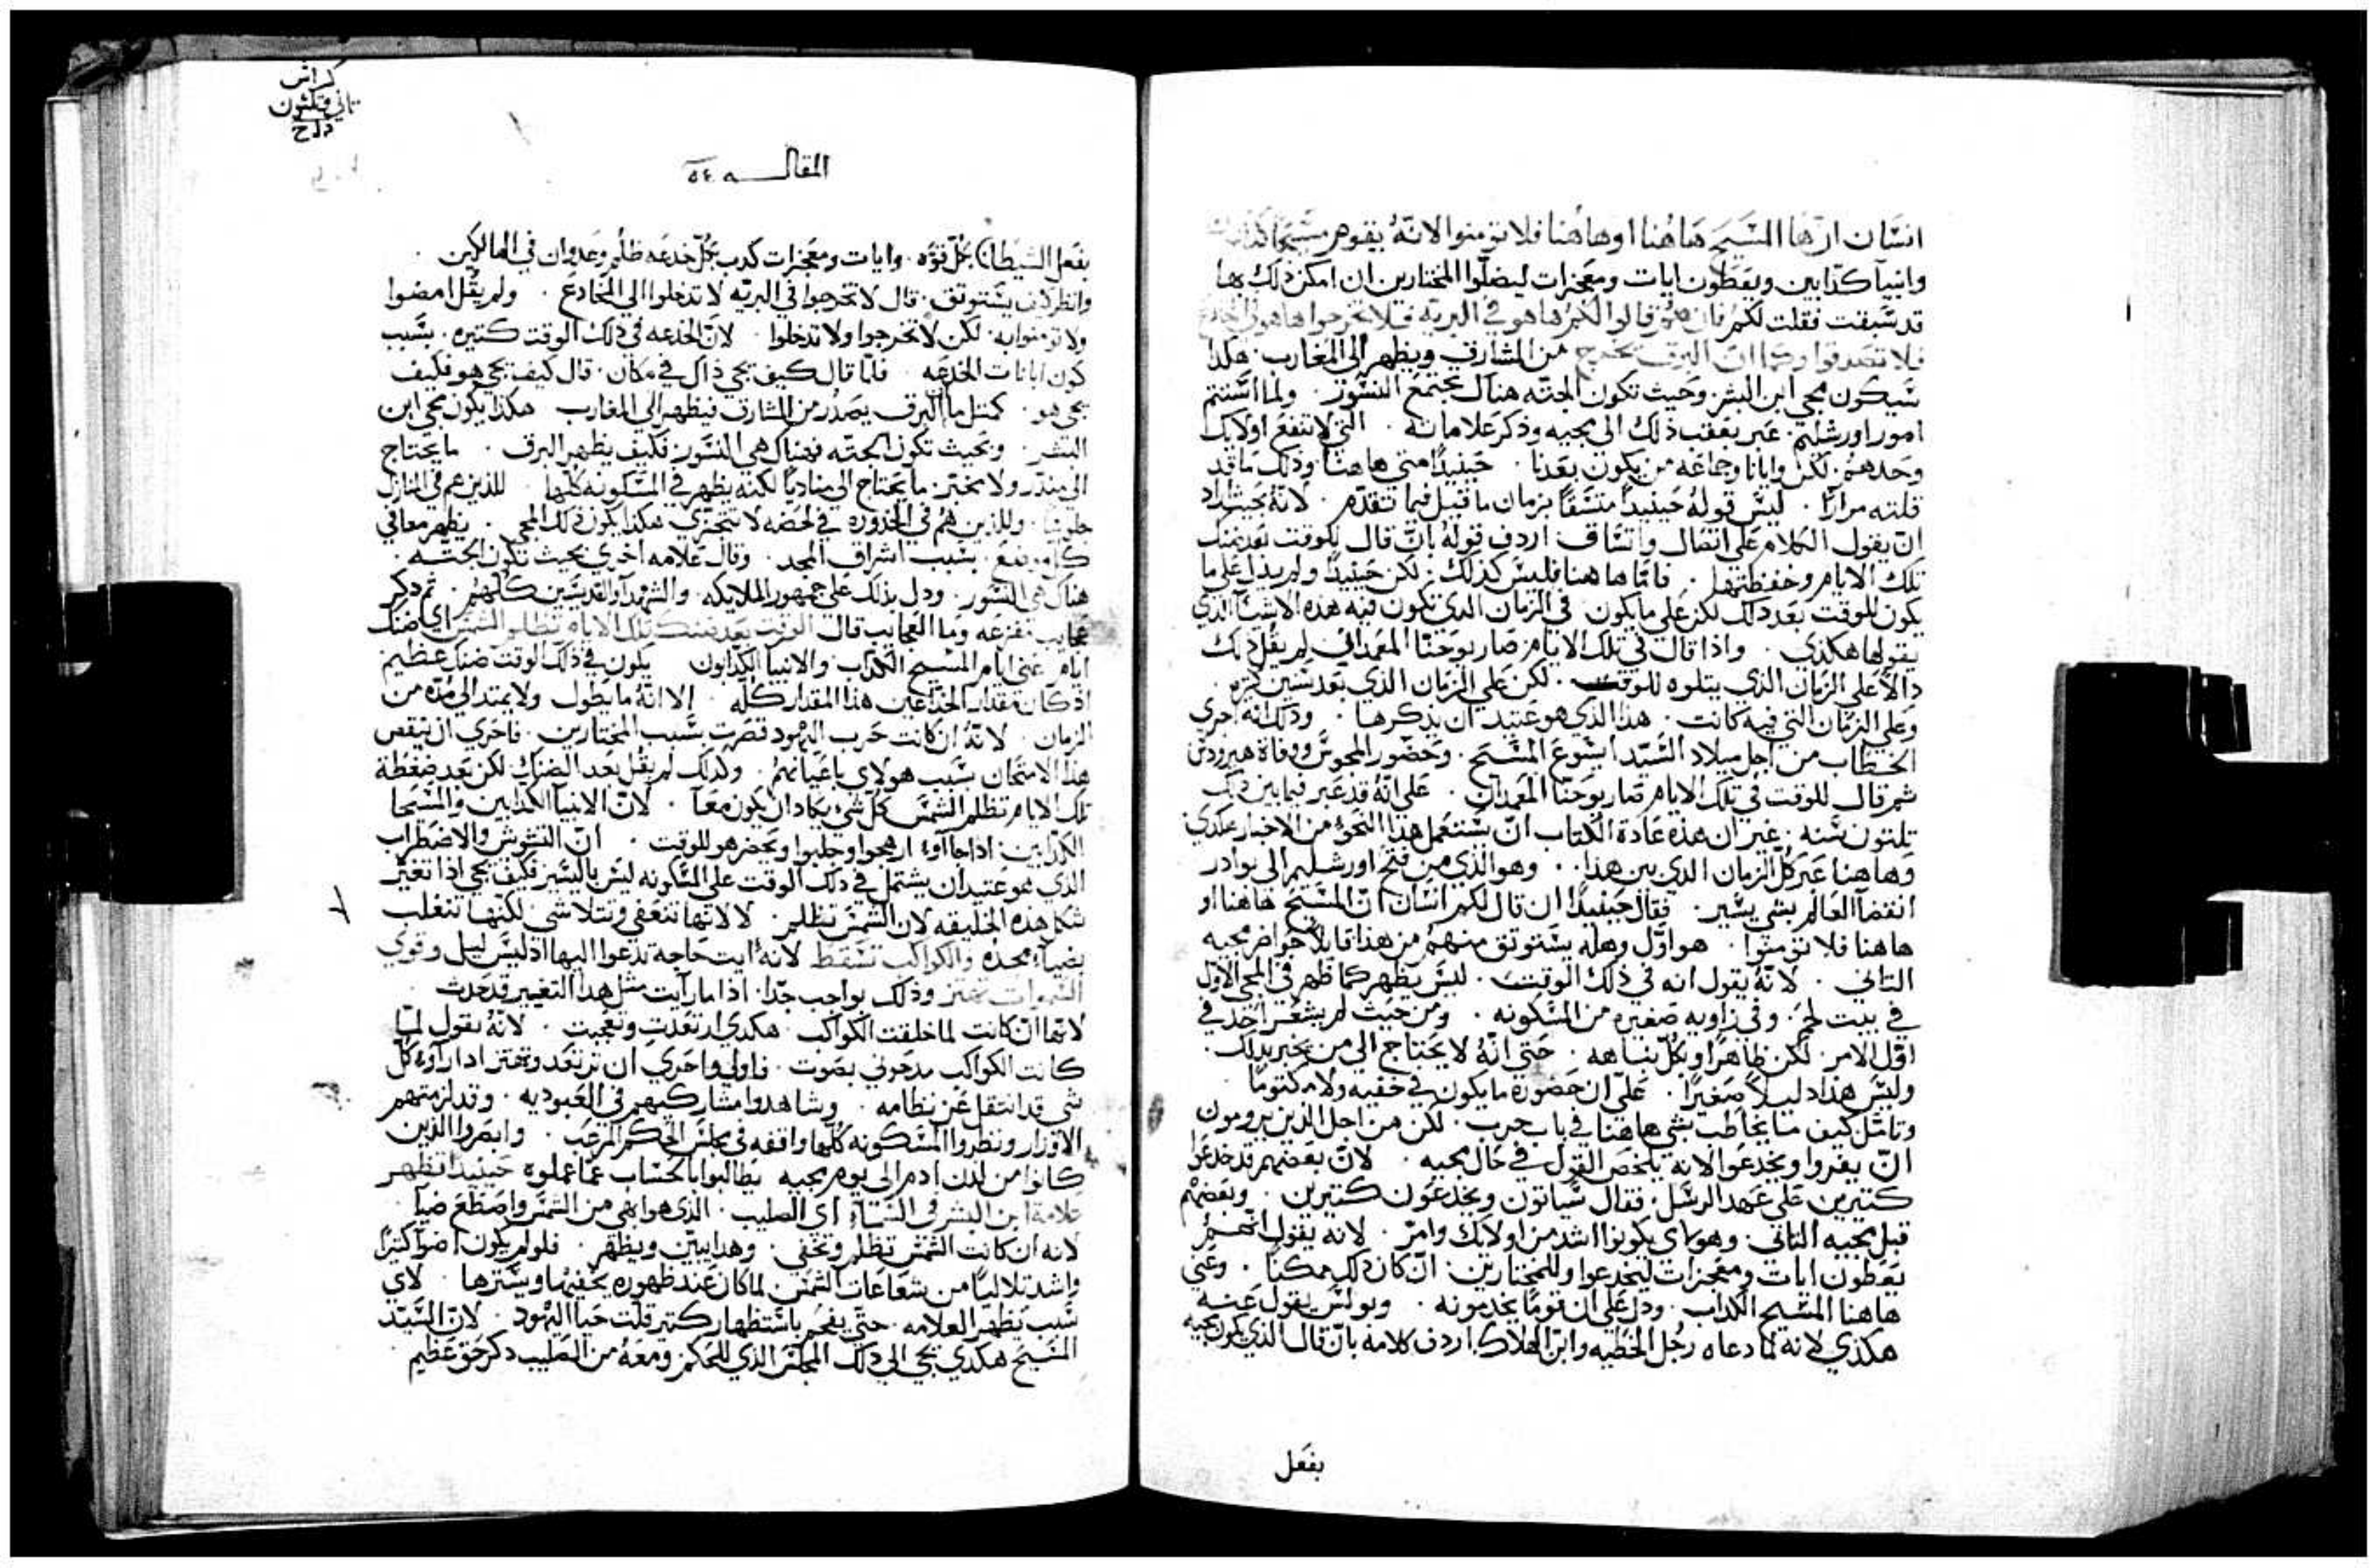 انسان ان ها المسيح هاهنا اوهاهنا فلا تومنوا لانه يقوم مسحا كدابين
وانبيا كدابين ويعطون ايات ومعجزات ليضلوا المختارين ان امكن ذلك ها
قد سبقت فقلت لكم فان قالوا لكم ها هو في البريه فلا تخرجوا ها هو في المخادع
فلا تصدقوا وكما ان البرق يخرج من المشارق ويظهر الي المغارب هكدا
سيكون مجي ابن البشر وحيث تكون الجته هناك يجتمع النسور ولما استتم
امور اورشليم عبر بعقب ذلك الى مجيه وذكر علاماته التي لا تنفع اولايك
وحدهم لكن وايانا وجماعه من يكون بعدنا حينيدا متي هاهنا وذلك ما قد
قلته مرارا ليس قوله حينيدا متسقا بزمان ما قيل فيما تقدم لانه حيث اراد
ان يقول الكلام على اتصال واتساق اردف قوله بان قال للوقت بعد ضنك
تلك الايام فاما هاهنا فليس كذلك لكن حينيدا ولم يدل على ما
يكون للوقت بعد ذلك لكن على ما يكون في الزمان الدي تكون فيه هده الاشيا الدي
يقولها هكذي واذا قال في تلك الايام صار يوحنا المعمدان لم يقل ذلك
دالا على الزمان الذي يتلوه للوقت لكن على الزمان الذي بعد سنين كثره
وعلي الزمان التي فيه كانت هذا الذي هو عتيد ان يذكرها وذلك انه اجري
الخطاب من اجل ميلاد السيد ايسوع المسيح وحضور المجوس ووفاة هيرودس
ثم قال للوقت في تلك الايام صار يوحنا المعمدان على انه قد عبر فيما بين ذلك
تلتون سنه غير ان هذه عادة الكتاب ان يستعمل هدا النحو من الاخبار هكدي
وهاهنا عبر كل الزمان الدي بين هدا وهو الذي من فتح اورشليم الى بوادر
انقضا العالم بشي يسير فقال حينيدا ان قال لكم انسان ان المسيح هاهنا او
هاهنا فلا تومنوا هو اول وهله يستوتق منهم من هذا قايلا خواص مجيه
التاني لانه يقول انه في ذلك الوقت ليس يظهر كما ظهر في المجي الاول
في بيت لحم وفي زاويه صغيره من المسكونه ومن حيث لم يشعر احد في
اول الامر لكن ظاهرا وبكل نباهه حتى انه لا يحتاج الي من يخبر بدلك
وليس هذا دليلا صغيرا على ان حضوره ما يكون في خفيه ولا مكتوما
وتامل كيف ما يخاطب بشي هاهنا في باب حرب لكن من اجل الذين يرومون
ان يغروا ويخدعوا لانه يلخص القول في حال مجيه لان بعضهم قد خدعوا
كتيرين على عهد الرسل فقال سياتون ويخدعون كتيرين وبعضهم
قبل مجيه التاني وهولاي يكونوا اشد من اولايك وامر لانه يقول انهم
يعطون ايات ومعجزات ليخدعوا وللمختارين ان كان ذلك ممكنا وعني
هاهنا المسيح الكداب ودل على ان قوما يخدمونه وبولس يقول عنه
هكدي لانه لما دعاه رجل الخطيه وابن الهلاك اردف كلامه بان قال الذي يكون مجيه
بفعل
كراس
تاني وتلتون
المقاله ٥٤
بفعل الشيطان بكل قوه وايات ومعجزات كدب بكل خدعه ظلم وعدوان في الهالكين
وانظر كيف يستوتق قال لا تخرجوا في البريه لا تدخلوا الي المخادع ولم يقل امضوا
ولا تومنوا به لكن لا تخرجوا ولا تدخلوا لان الخدعه في دلك الوقت كتيره بسبب
كون ايات الخدعه فلما قال كيف يجي ذاك في مكان قال كيف يجي هو فكيف
يجي هو كمتل ما البرق يصدر من المشارق فيظهر الي المغارب هكذا يكون مجي ابن
البشر وبحيث تكون الجته فهناك هي النسور فكيف يظهر البرق ما يحتاج
الي مندر ولا مخبر ما يحتاج الي مناديا لكنه يظهر في المسكونه كلها للذين هم في المنازل
جلوسا وللذين هم في الخدوره في لحضه لا تتجزي هكدا يكون ذلك المجي يظهر معا في
كل موضع بسبب اشراق المجد وقال علامه اخري بحيث تكون الجته
هناك هي النسور ودل بذلك على جمهور الملايكه والشهدا والقديسين كلهم ثم دكر
عجايب مفزعه وما العجايب قال الوقت بعد ضنك تلك الايام تظلم الشمس اي ضنك
ايام عني ايام المسيح الكداب والانبيا الكدابون يكون في ذلك الوقت ضنك عظيم
اذ كان مقدار الخداعين هذا المقدار كله الا انه ما يطول ولا يمتد الى مده من
الزمان لانه ان كانت حرب اليهود قصرت بسبب المختارين فاحري ان ينقص
هذا الامتحان بسبب هولاي باعيانهم ولدلك لم يقل بعد الضنك لكن بعد ضغطة
تلك الايام تظلم الشمس كل شي يكاد ان يكون معا لان الانبيا الكدابين والمسحا
الكدابين اذا جاآوا ارهجوا وجلبوا ويحضر هو للوقت ان التشوش والاضطراب
الذي هو عتيد ان يشتمل في دلك الوقت على المسكونه ليس باليسير فكيف يجي اذا تغير
شكل هذه الخليقه لان الشمس تظلم لا لانها تتعفي وتتلاشي لكنها تنغلب
بضيا مجده والكواكب تسقط لانه ايت حاجه تدعوا اليها اذ ليس ليل وقوي
السموات تهتز وذلك بواجب جدا اذا ما رآيت مثل هدا التغيير قد حدث
لانها ان كانت لما خلقت الكواكب هكدي ارتعدت وتعجبت لانه يقول لما
كانت الكواكب مدحوني بصوت فاولي واحري ان ترتعد وتهتز ادا رآوا كل
شي قد انتقل عن نظامه وشاهدوا مشاركيهم في العبوديه وقد لزمتهم
الاوزار ونظروا المسكونه كلها واقفه في مجلس الحكم المرعب وابصروا الذين
كانوا من لدن ادم الى يوم مجيه يطالبوا بالحساب عما عملوه حينيدا تظهر
علامة ابن البشر في السماء اي الصليب الذي هو ابهي من الشمس واصطع ضيا
لانه ان كانت الشمس تظلم وتخفي وهدا يبين ويظهر فلو لم يكون اضوا كتيرا
واشد تلاليا من شعاعات الشمس لما كان عند ظهوره يخفيها ويسترها لاي
سبب تظهر العلامه حتى يفحم باستظهار كتير قلت حيا اليهود لان السيد
المسيح هكدي يجي الي دلك المجلس الذي للحكم ومعه من الصليب دكر حق عظيم